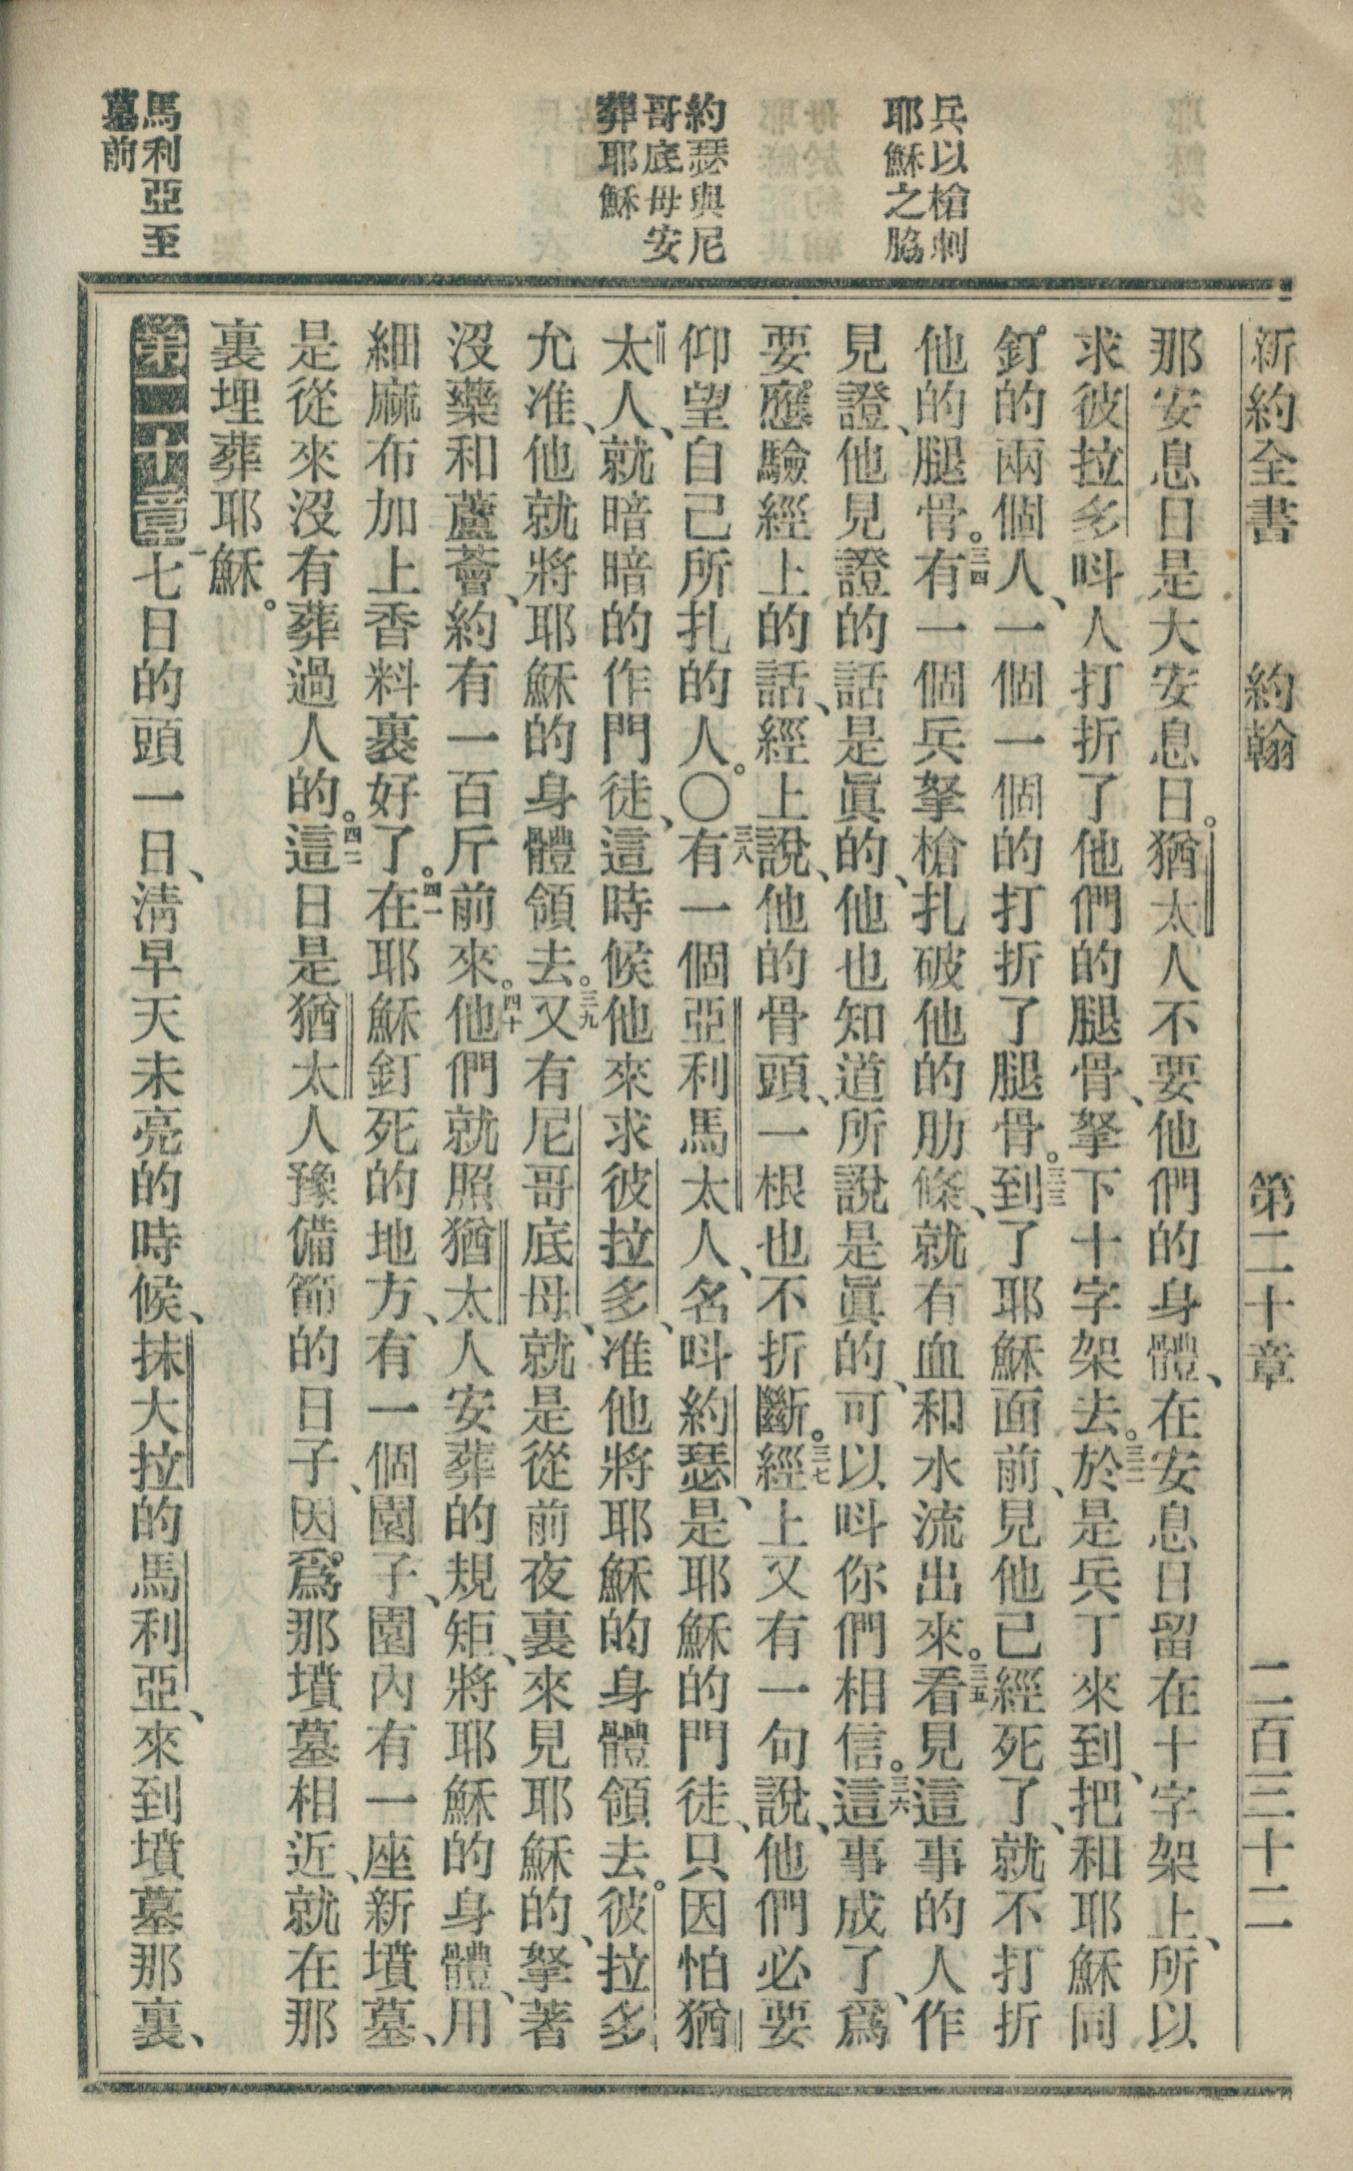 新約全書　約翰　第二十章　二百三十二
兵以槍刺
耶穌之脇
約瑟與尼
哥底母安
葬耶穌
馬利亞至
墓前
那安息日是大安息日。猶太人不要他們的身體、在安息日留在十字架上、所以
求彼拉多呌人打折了他們的腿骨、拏下十字架去。三二於是兵丁來到、把和耶穌同
釘的兩個人、一個一個的打折了腿骨。三三到了耶穌面前、見他已經死了、就不打折
他的腿骨。三四有一個兵拏槍扎破他的肋條、就有血和水流出來。三五看見這事的人作
見證、他見證的話是眞的、他也知道所說是眞的、可以呌你們相信。三六這事成了、爲
要應驗經上的話、經上說、他的骨頭、一根也不折斷。三七經上又有一句說、他們必要
仰望自己所扎的人。〇三八有一個亞利馬太人、名呌約瑟、是耶穌的門徒、只因怕猶
太人、就暗暗的作門徒、這時候他來求彼拉多、准他將耶穌的身體領去。彼拉多
允准、他就將耶穌的身體領去。三九又有尼哥底母、就是從前夜裏來見耶穌的、拏著
沒藥和蘆薈、約有一百斤前來。四十他們就照猶太人安葬的規矩、將耶穌的身體、用
細麻布加上香料裹好了。四一在耶穌釘死的地方、有一個園子、園內有一座新墳墓、
是從來沒有葬過人的。四二這日是猶太人豫備節的日子、因爲那墳墓相近、就在那
裏埋葬耶穌。
第二十章一七日的頭一日、淸早天未亮的時候、抹大拉的馬利亞、來到墳墓那裏、